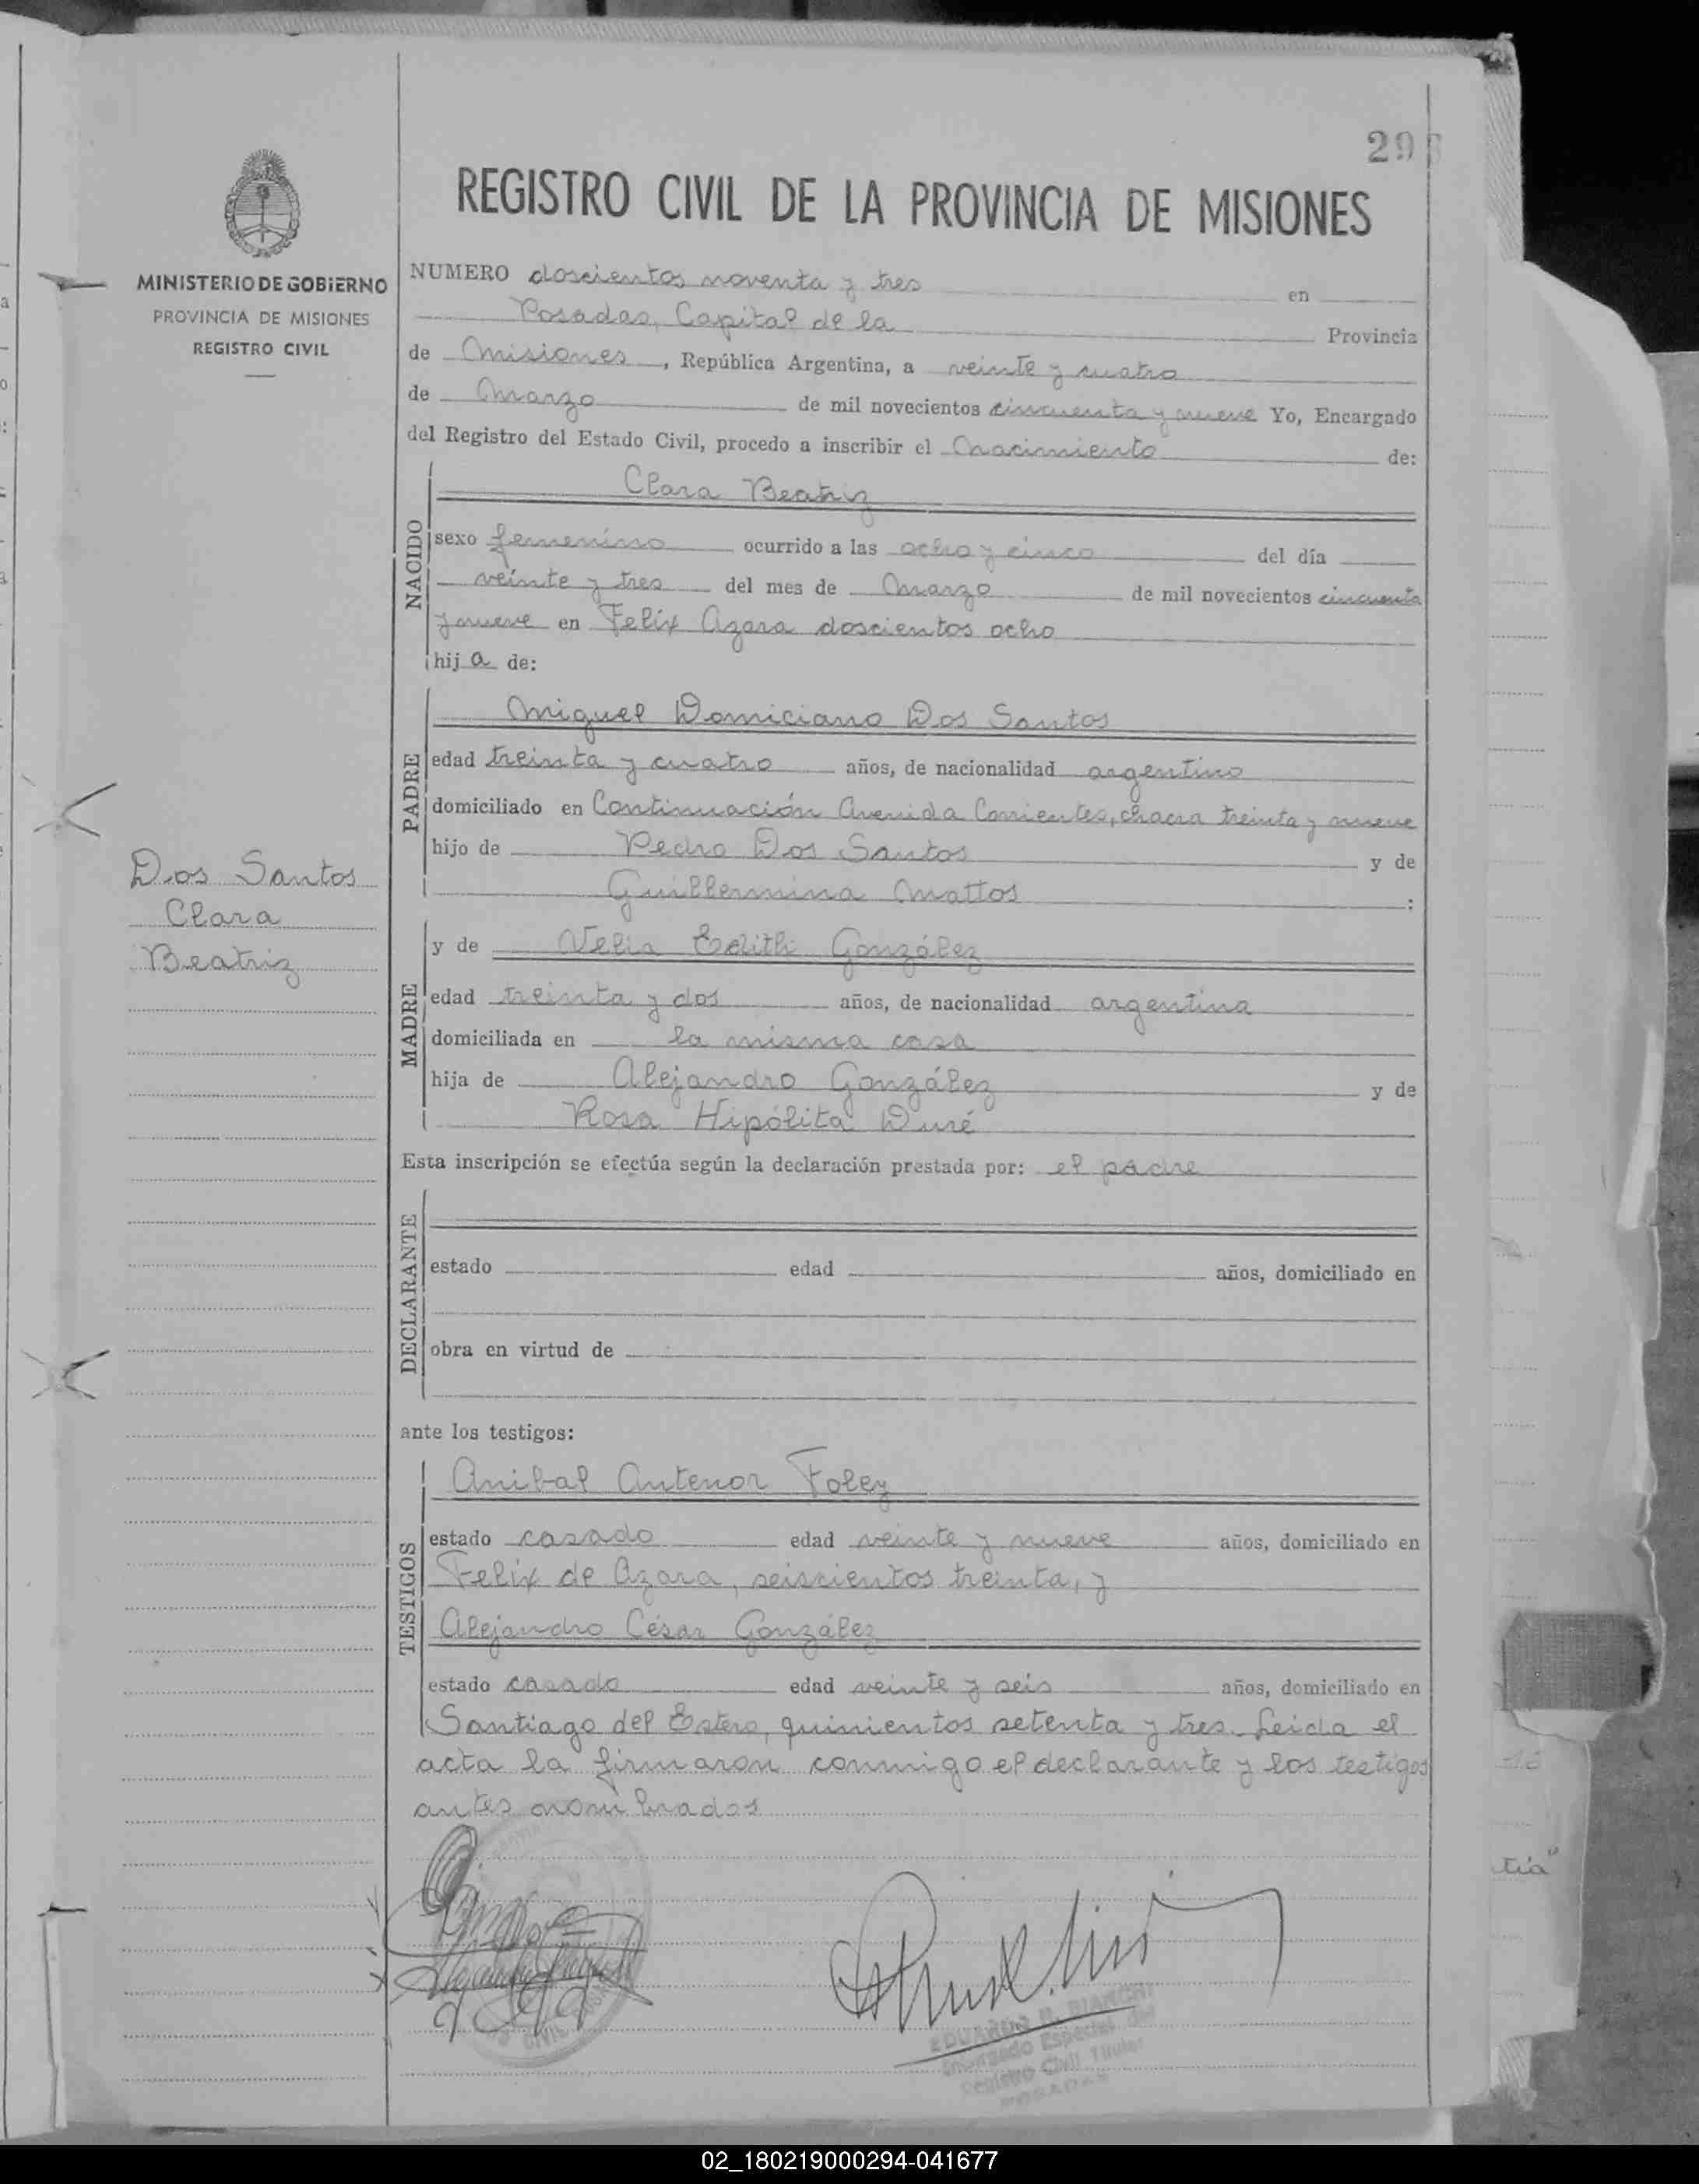 29
REGISTRO CIVIL DE LA PROVINCIA DE MISIONES
MINISTERIO DE GOBIERNO
PROVINCIA DE MISIONES
REGISTRO CIVIL
NUMERO doscientos noventa y tres en
Posadas, Capital de la Provincia
de Misiones, República Argentina, a veinte y cuatro
de Marzo de mil novecientos cincuenta y nueve Yo, Encargado
del Registro del Estado Civil, procedo a inscribir el Nacimiento de:
NACIDO
Clara Beatriz
sexo femenino ocurrido a las ocho y cinco del día
veinte y tres del mes de Marzo de mil novecientos cincuenta
y nueve en Felix Azara doscientos ocho
hij a de:
PADRE
Miguel Domiciano Dos Santos
edad treinta y cuatro años, de nacionalidad argentino
domiciliado en Continuación Avenida Corrientes, chacra treinta y nueve
hijo de Pedro Dos Santos y de
Guillermina Mattos :
Dos Santos
Clara
Beatriz
MADRE
y de Velia Edith González
edad treinta y dos años, de nacionalidad argentina
domiciliada en la misma casa
hija de Alejandro González y de
Rosa Hipólita Duré
Esta inscripción se efectúa según la declaración prestada por: el padre
DECLARANTE
estado edad años, domiciliado en
obra en virtud de
ante los testigos:
TESTIGOS
Anibal Antenor Foley
estado casado edad veinte y nueve años, domiciliado en
Felix de Azara, seiscientos treinta, y
Alejandro César González
estado casado edad veinte y seis años, domiciliado en
Santiago del Estero, quinientos setenta y tres. Leida el
acta la firmaron conmigo el declarante y los testigos
antes nombrados
EDUARDO BIANCHI
Encargado Especial del
Registro Civil Titular
POSADAS
tia"
02_180219000294-041677